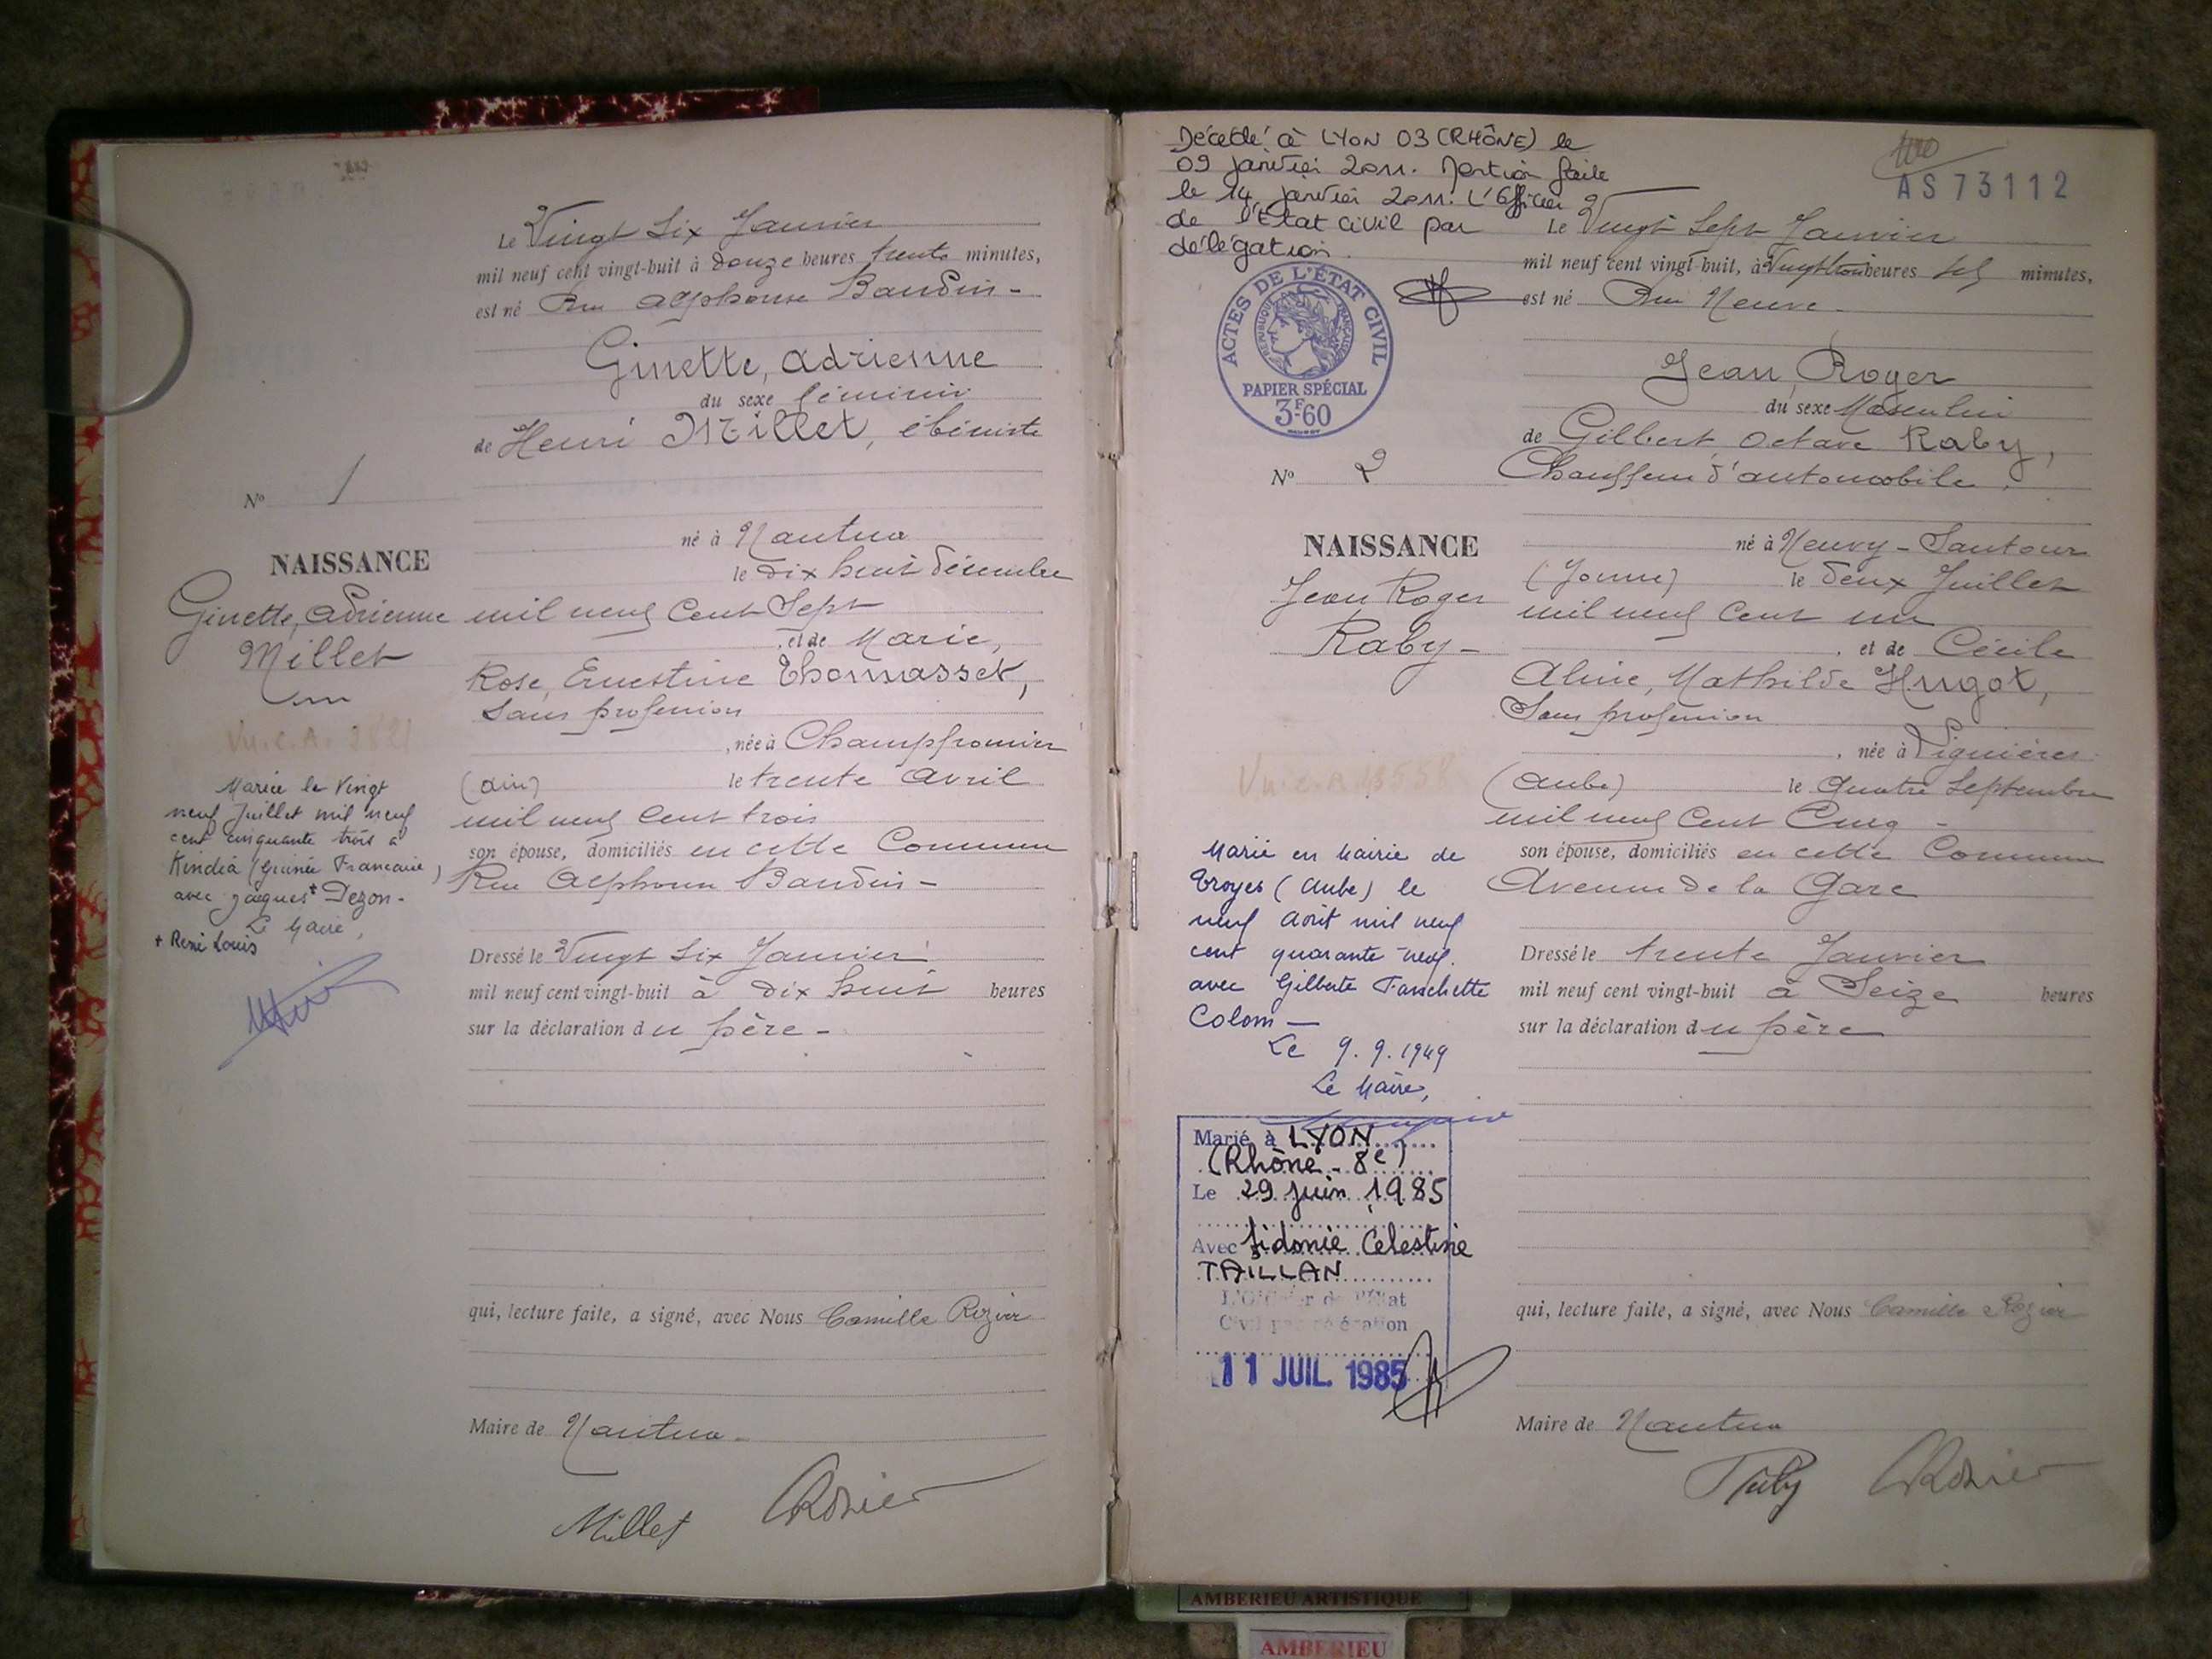 Le Vingt Six Janvier
mil neuf cent vingt-huit à douze heures trente minutes,
est né Rue Alphonse Baudin -
Ginette, Adrienne
du sexe féminin
de Henri Millet, ébéniste
né à Nantua
le dix huit décembre
mil neuf Cent Sept
, et de Marie,
Rose, Ernestine Thomasset,
Sans profession
, née à Champfromier
(Ain) le trente Avril
mil neuf Cent trois
son épouse, domiciliés en cette Commune
Rue Alphonse Baudin -
Dressé le Vingt Six Janvier
mil neuf cent vingt-huit à dix huit heures
sur la déclaration du père -
qui, lecture faite, a signé, avec Nous Camille Rozier
Maire de Nantua -
Millet CRozier
No 1
NAISSANCE
Ginette, Adrienne
Millet
Vu.C.A.
Mariée le Vingt
neuf Juillet mil neuf
cent cinquante trois à
Kindia (Guinée Française)
avec Jacques + Dezon -
Le Maire,
+ René Louis
Décédé à LYON 03 (RHÔNE) le
09 Janvier 2011. Mention faite
le 14 janvier 2011. L'Officier
de l'Etat Civil par
délégation.
ACTES DE L'ÉTAT CIVIL
RÉPUBLIQUE FRANÇAISE
PAPIER SPÉCIAL
3F-60
100
AS 73112
Le Vingt Sept Janvier
mil neuf cent vingt-huit, à Vingt trois heures minutes,
est né Rue Neuve -
Jean, Roger
du sexe Masculin
de Gilbert, Octave Raby,
Chauffeur d'automobile,
né à Neuvy-Sautour
(Yonne) le deux Juillet
mil neuf Cent un
, et de Cécile
Aline, Mathilde Hugot,
Sans profession
, née à Lignières
(Aube) le Quatre Septembre
mil neuf Cent Cinq -
son épouse, domiciliés en cette Commune
Avenue de la Gare
Dressé le trente Janvier
mil neuf cent vingt-huit à Seize heures
sur la déclaration du père
qui, lecture faite, a signé, avec Nous Camille Rozier
Maire de Nantua
Raby CRozier
No 2
NAISSANCE
Jean, Roger
Raby -
Vu.C.A
Marié en Mairie de
Troyes (Aube) le
neuf Août mil neuf
cent quarante-neuf.
avec Gilberte Fanchette
Colom -
Le 9.9.1949
Le Maire,
Marié à LYON
(Rhône - 8e)
Le 29 juin 1985
Avec Sidonie Célestine
TAILLAN
L'Officier de l'Etat
Civil par délégation
11 JUIL. 1985
AMBERIEU ARTISTIQUE
AMBERIEU